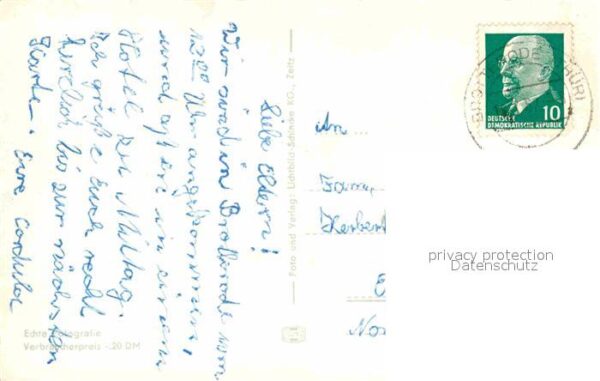 Liebe Eltern!
Wir sind in Brotterode um
12⁰⁰ Uhr angekommen,
und essen in einem
Hotel zu Mittag.
Ich grüße Euch recht
herzlich bis zur nächsten
Karte. Eure Cordula
Foto und Verlag: Lichtbild KG., Zeitz
An
Herbert
DEUTSCHE
DEMOKRATISCHE REPUBLIK
10
BROTTERODE (THÜR)
privacy protection
Datenschutz
Echte Fotografie
Verbraucherpreis -.20 DM